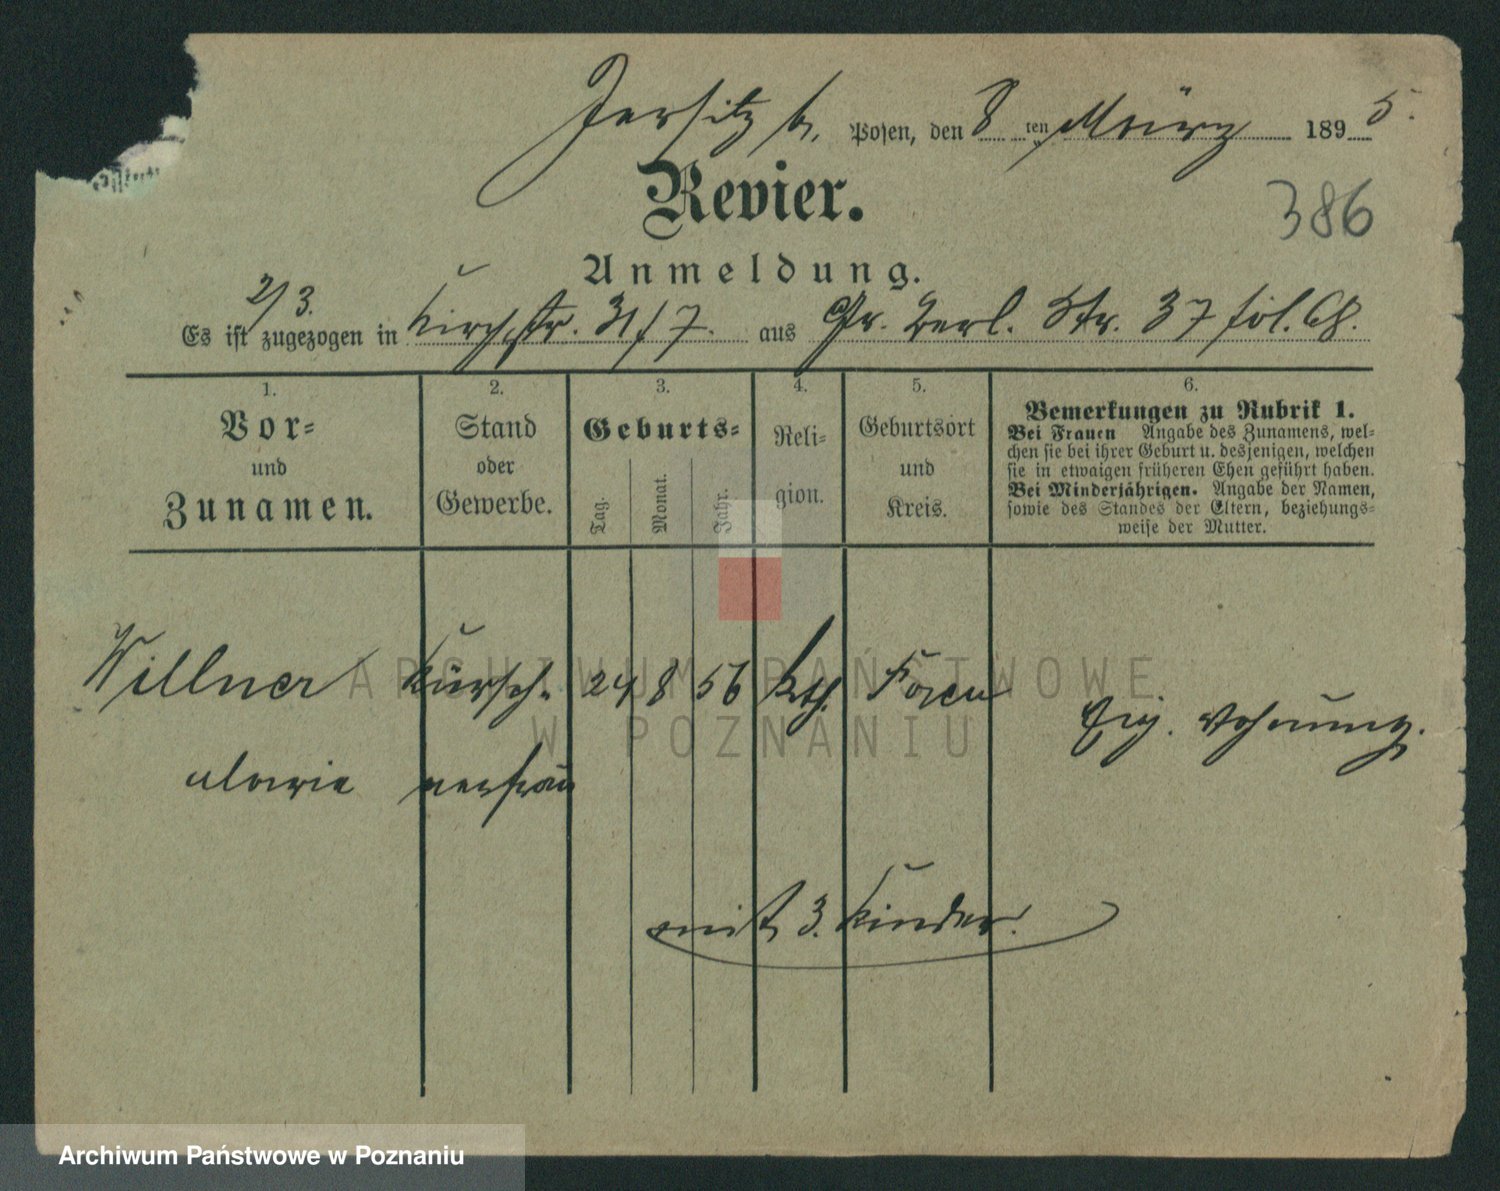 Jersitz b. Posen, den 8ten März 1895.
Revier.
386
Anmeldung.
2/3.
Es ist zugezogen in Kirchstr. 31/7. aus Gr. Berl. Str. 37
1. 2. 3. 4. 5. 6.
Vor- und Zunamen.
Stand oder Gewerbe.
Geburts-
Tag. Monat. Jahr.
Religion.
Geburtsort und Kreis.
Bemerkungen zu Rubrik 1.
Bei Frauen Angabe des Zunamens, wel-
chen sie bei ihrer Geburt u. desjenigen, welchen
sie in etwaigen früheren Ehen geführt haben.
Bei Minderjährigen. Angabe der Namen,
sowie des Standes der Eltern, beziehungs-
weise der Mutter.
Willner Kürsch- 24 8 56 kth. Posen Eig. Wohnung.
Marie nerfrau
mit 3. Kinder.
ARCHIWUM PAŃSTWOWE
W POZNANIU
Archiwum Państwowe w Poznaniu